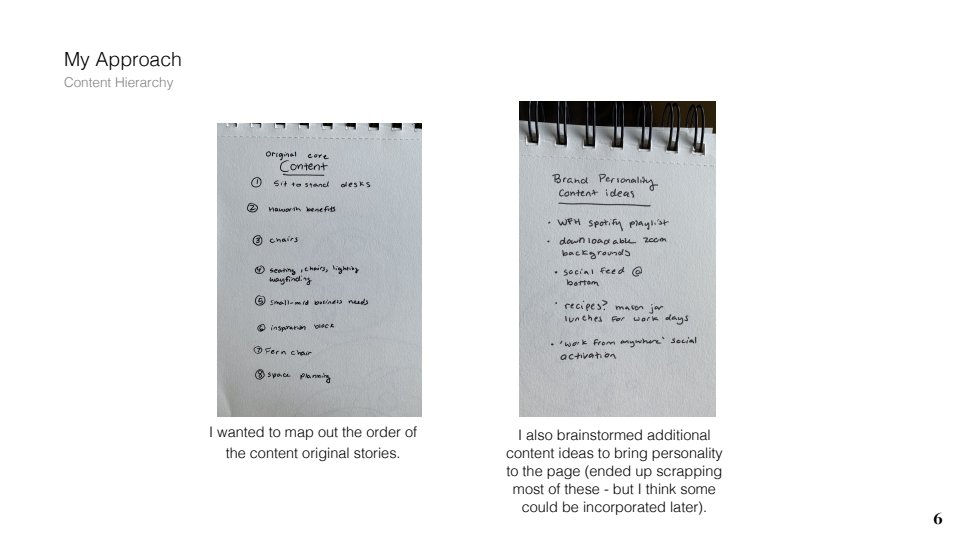 My Approach
Content Hierarchy
Original core
Content
① Sit to stand desks
② Haworth benefits
③ chairs
④ seating, chairs, lighting
wayfinding
⑤ Small-mid business needs
⑥ inspiration block
⑦ Fern chair
⑧ space planning
I wanted to map out the order of
the content original stories.
Brand Personality
Content ideas
• WFH spotify playlist
• downloadable zoom
backgrounds
• social feed @
bottom
• recipes? mason jar
lunches for work days
• 'work from anywhere' social
activation
I also brainstormed additional
content ideas to bring personality
to the page (ended up scrapping
most of these - but I think some
could be incorporated later).
6